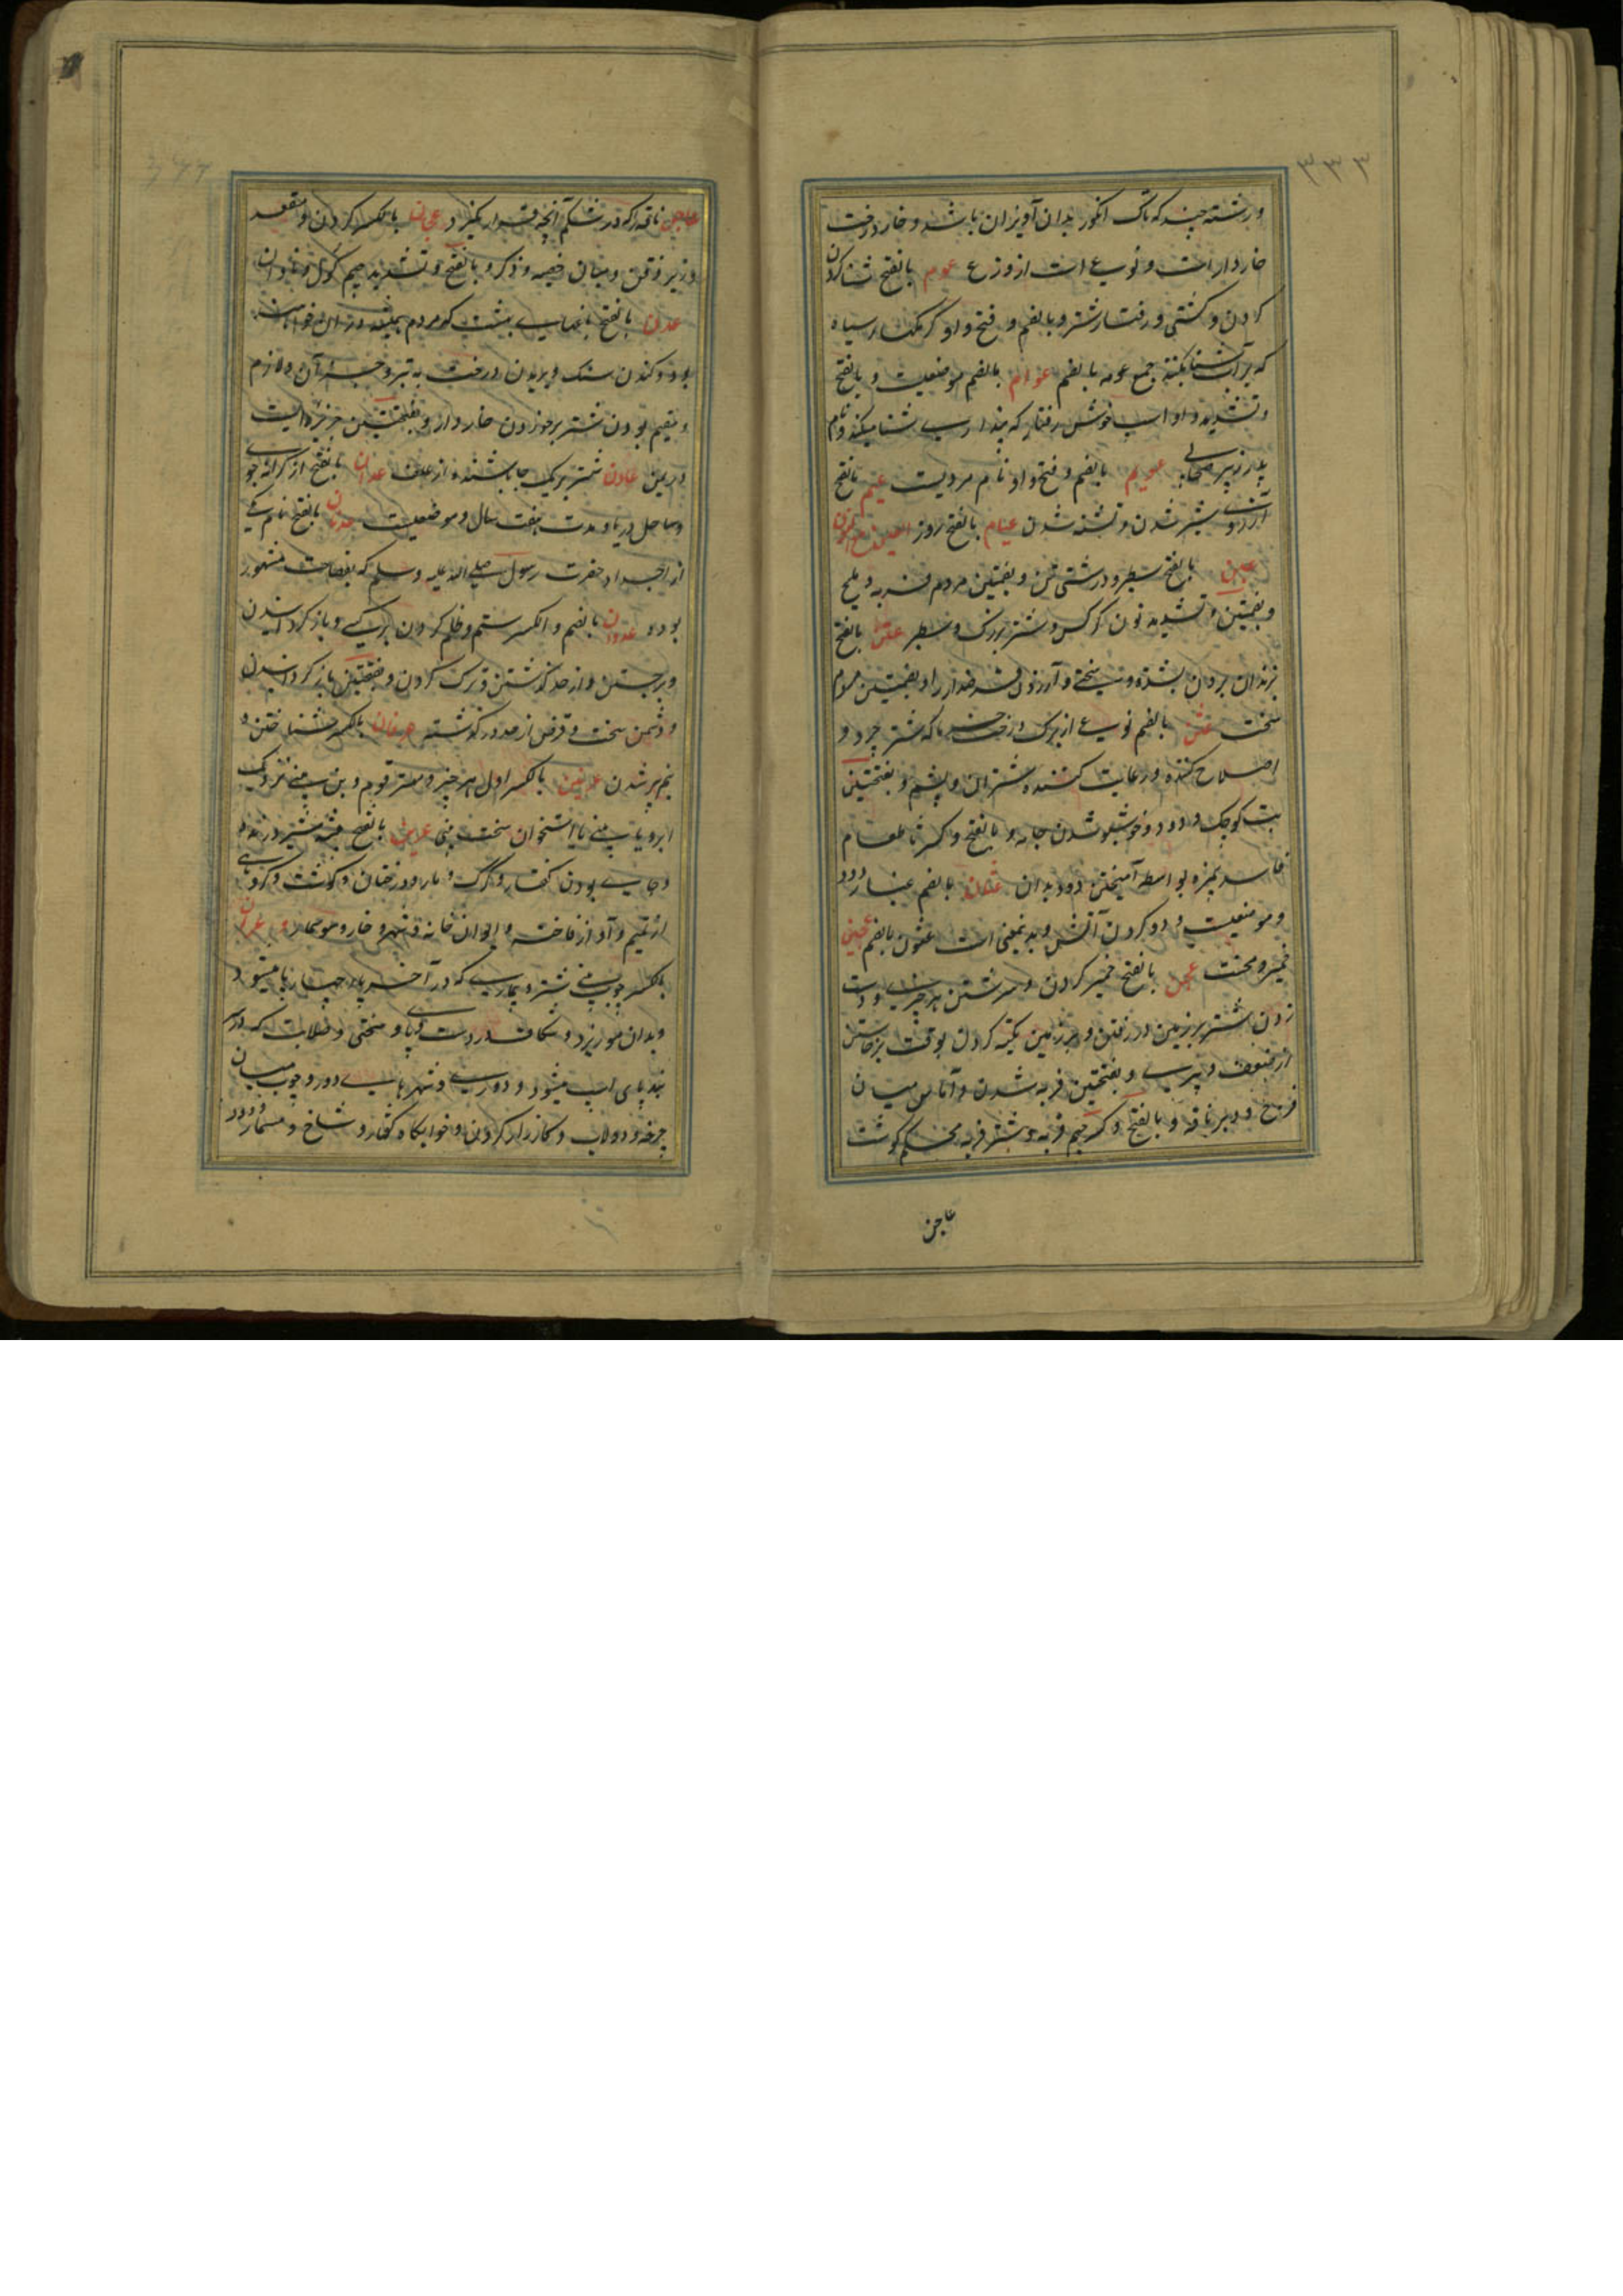 ۳۳۳
ورشته چند که تاک انکور بدان آویزان باشد و خار درخت
خار دار است و نوعی است از وزغ عوم بالفتح شنا کردن
کردن و کشتی و رفتار شتر و بالضم و فتح واو کرمکهاء سیاه
که بر آب شنا بکنند جمع عومه بالضم عوام بالضم موضعیست و بالفتح
و تشدید واو اسب خوش رفتار که پنداری شنا میکند و نام
پدر زبیر صحابی عویم بالضم و فتح واو نام مردیست عیم بالفتح
آرزوی بشیر شدن و تشنه شدن عیام بالفتح روز العین مع النون
عبن بالفتح سطبر و درشتی تن و بفتحتین مردم فربه و ملیح
و بفتحتین و تشدید نون کرکس و شتر بزرک و سطبر عتن بالفتح
بزندان بردن بشده و سختی و آرزدن قرضدار را و بضمتین مردم
سخت عثن بالضم نوعی از برک درخت که شتر چرد و
اصلاح کننده و رعایت کننده شتران و پشم و بفتحتین
بت کوچک و دود و خوشبو شدن جامه و بالفتح و کسر ثا طعام
فاسد بمزه بواسطه آمیختن دود بدان عثان بالضم غبار و دود
و موضعیست و دود کردن آتش و بدینمعنی است عثون بالضم عجین
خمیر و مخنث عجن بالفتح خمیر کردن و سرشتن هر چیزی و دست
زدن شتر بر زمین در رفتن و بر زمین تکیه کردن بوقت برخاستن
از ضعف و پیری و بفتحتین فربه شدن و آماس میان
فرج و دبر ناقه و بالفتح و کسر جیم فربه و شتر فربه محکم کوشت
عاجن
عاجن ناقه را که در شکم آنچه قرار نکیرد و عجان بالکسر کردن و مقعد
و زیر ذقن و میان خصیه و ذکر و بالفتح و تشدید جیم کول و نادان
عدن بالفتح باغهایی بهشت که مردم همیشه در آن خواهند
بود و کندن سنک و بریدن درخت به تبر و جز آن و لازم
و مقیم بودن شتر بر خوردن خار دار و بفتحتین جزیره ایست
در یمن عادن شتر بریک جا باشنده از علف عدان بالفتح از کرانه جوی
و ساحل دریا و مدت هفت سال و موضعیست عدنان بالفتح نام یکی
از اجداد حضرت رسول صلی الله علیه وسلم که بفصاحت مشهور
بوده عدوان بالضم و الکسر ستم و ظلم کردن بر کسی و باز کردانیدن
و برجستن و از حد کذشتن و ترک کردن و بفتحتین باز کردانیدن
و دشمن سخت و قرض از مدد کذشته عرفان بالکسر شناختن و
عرنین بالکسر اول هر چیز و مهتر قوم و بن بینی نزدیک
ابرو یا بینی یا استخوان سخت بینی عرین بالفتح بیشه شیر درنده
و جایی بودن کفتار و کرک و مار و درختان و کوشت و کروهی
از تمیم و آواز فاخته و ایوان خانه و شهر و خار و عران
بالکسر چوب بینی شتر و بیماریی که در آخر پاء چهارپا میشود
و بدان مو ریزد و شکاف در دست و پا و سختی و صلابت که در
بند پای اسپ میشود و دوری و شهرهایی دور و چوب میان
چرخه و دولاب و کارزار کردن و خوابکاه کفتار و شاخ و مسمار و دور